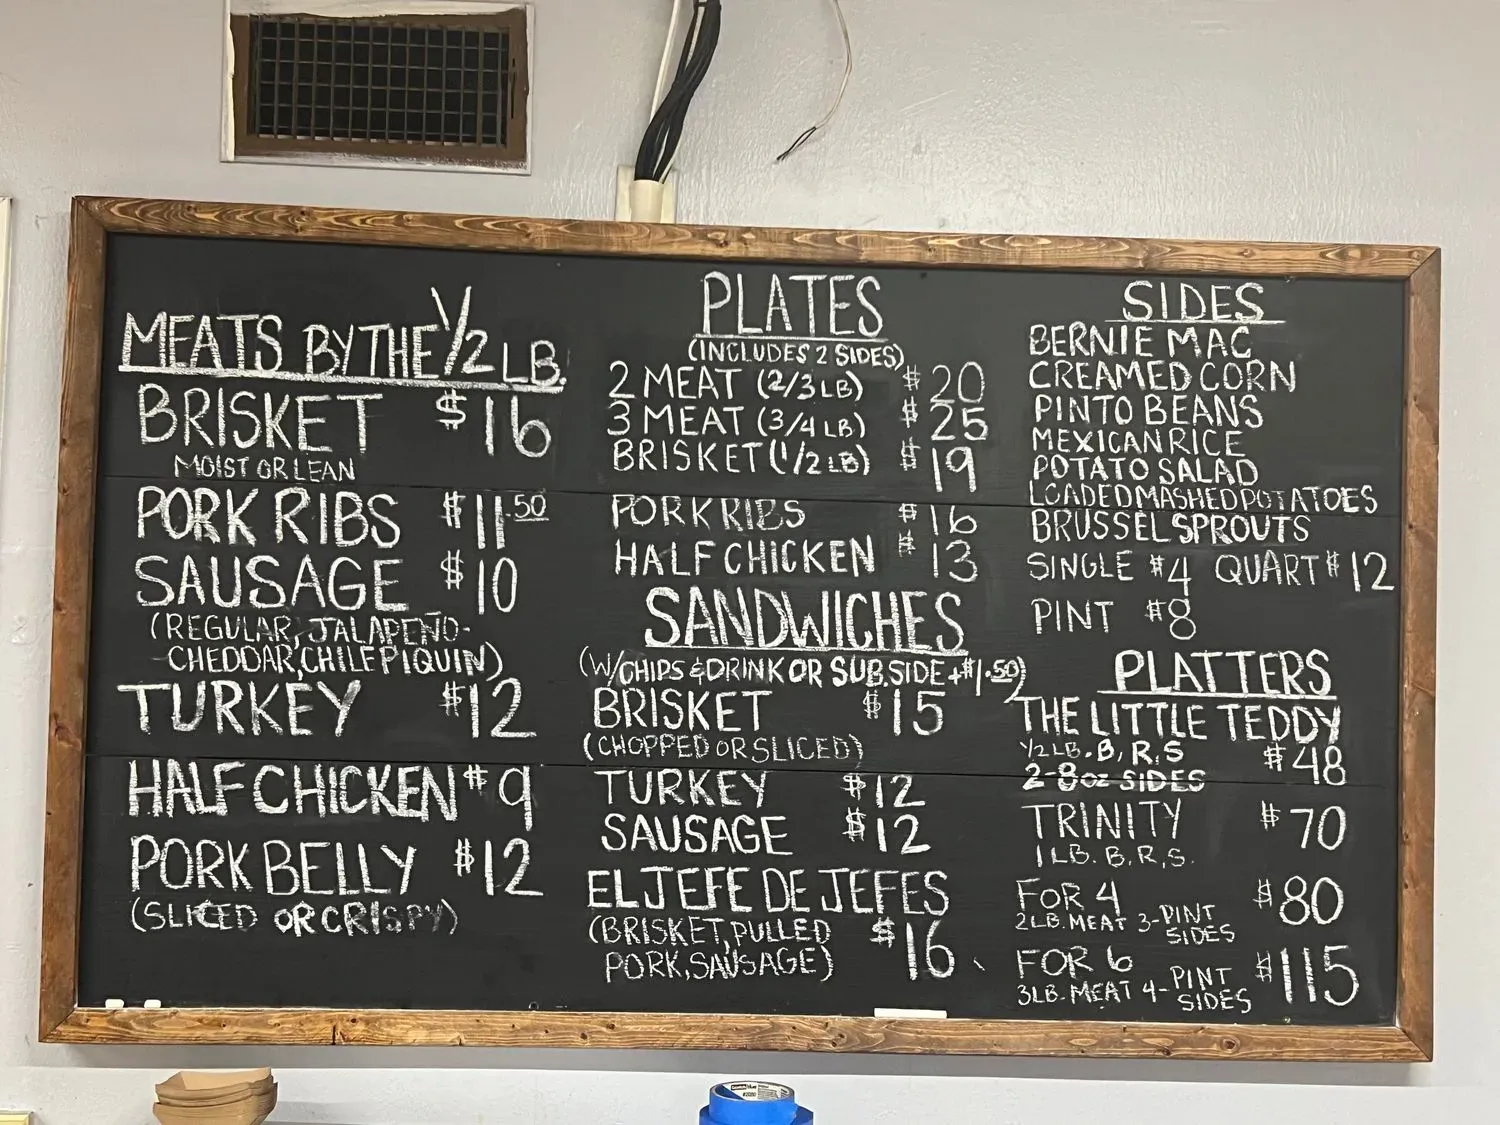 MEATS BY THE 1/2 LB.
BRISKET $16
MOIST OR LEAN
PORK RIBS $11.50
SAUSAGE $10
(REGULAR, JALAPEÑO-
CHEDDAR, CHILE PIQUIN)
TURKEY $12
HALF CHICKEN $9
PORK BELLY $12
(SLICED OR CRISPY)
PLATES
(INCLUDES 2 SIDES)
2 MEAT (2/3 LB) $20
3 MEAT (3/4 LB) $25
BRISKET (1/2 LB) $19
PORK RIBS $16
HALF CHICKEN $13
SANDWICHES
(W/CHIPS & DRINK OR SUB. SIDE +$1.50)
BRISKET $15
(CHOPPED OR SLICED)
TURKEY $12
SAUSAGE $12
EL JEFE DE JEFES
(BRISKET, PULLED $16
PORK, SAUSAGE)
SIDES
BERNIE MAC
CREAMED CORN
PINTO BEANS
MEXICAN RICE
POTATO SALAD
LOADED MASHED POTATOES
BRUSSEL SPROUTS
SINGLE $4 QUART $12
PINT $8
PLATTERS
THE LITTLE TEDDY
1/2 LB. B, R, S $48
2-8oz SIDES
TRINITY $70
1 LB. B, R, S.
FOR 4 $80
2LB. MEAT 3-PINT
SIDES
FOR 6 $115
3LB. MEAT 4-PINT
SIDES